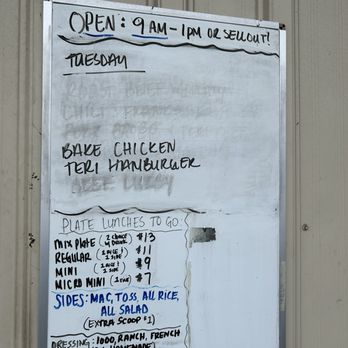 OPEN: 9 AM - 1PM OR SELLOUT!
TUESDAY
BAKE CHICKEN
TERI HAMBURGER
PLATE LUNCHES TO GO
MIX PLATE (2 CHOICE W/DRINK) $13
REGULAR $11
MINI $9
MICRO MINI $7
SIDES: MAC, TOSS, ALL RICE,
ALL SALAD
(EXTRA SCOOP $1)
DRESSING: 1000, RANCH, FRENCH